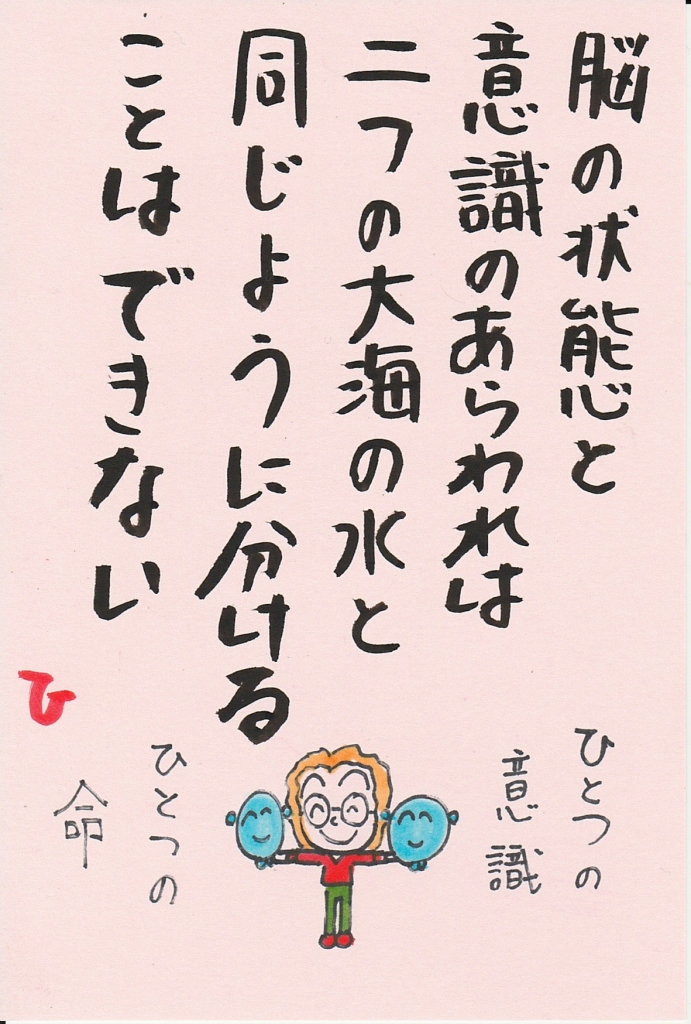 脳の状態と
意識のあらわれは
二つの大海の水と
同じように分ける
ことはできない
ひ
ひとつの
意識
ひとつの
命